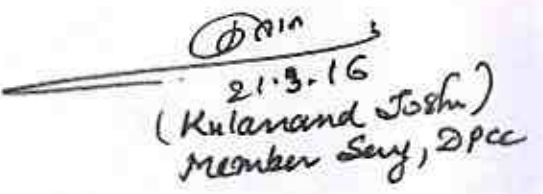 21.3.16
(Kulanand Joshi)
Member Secy, DPCC